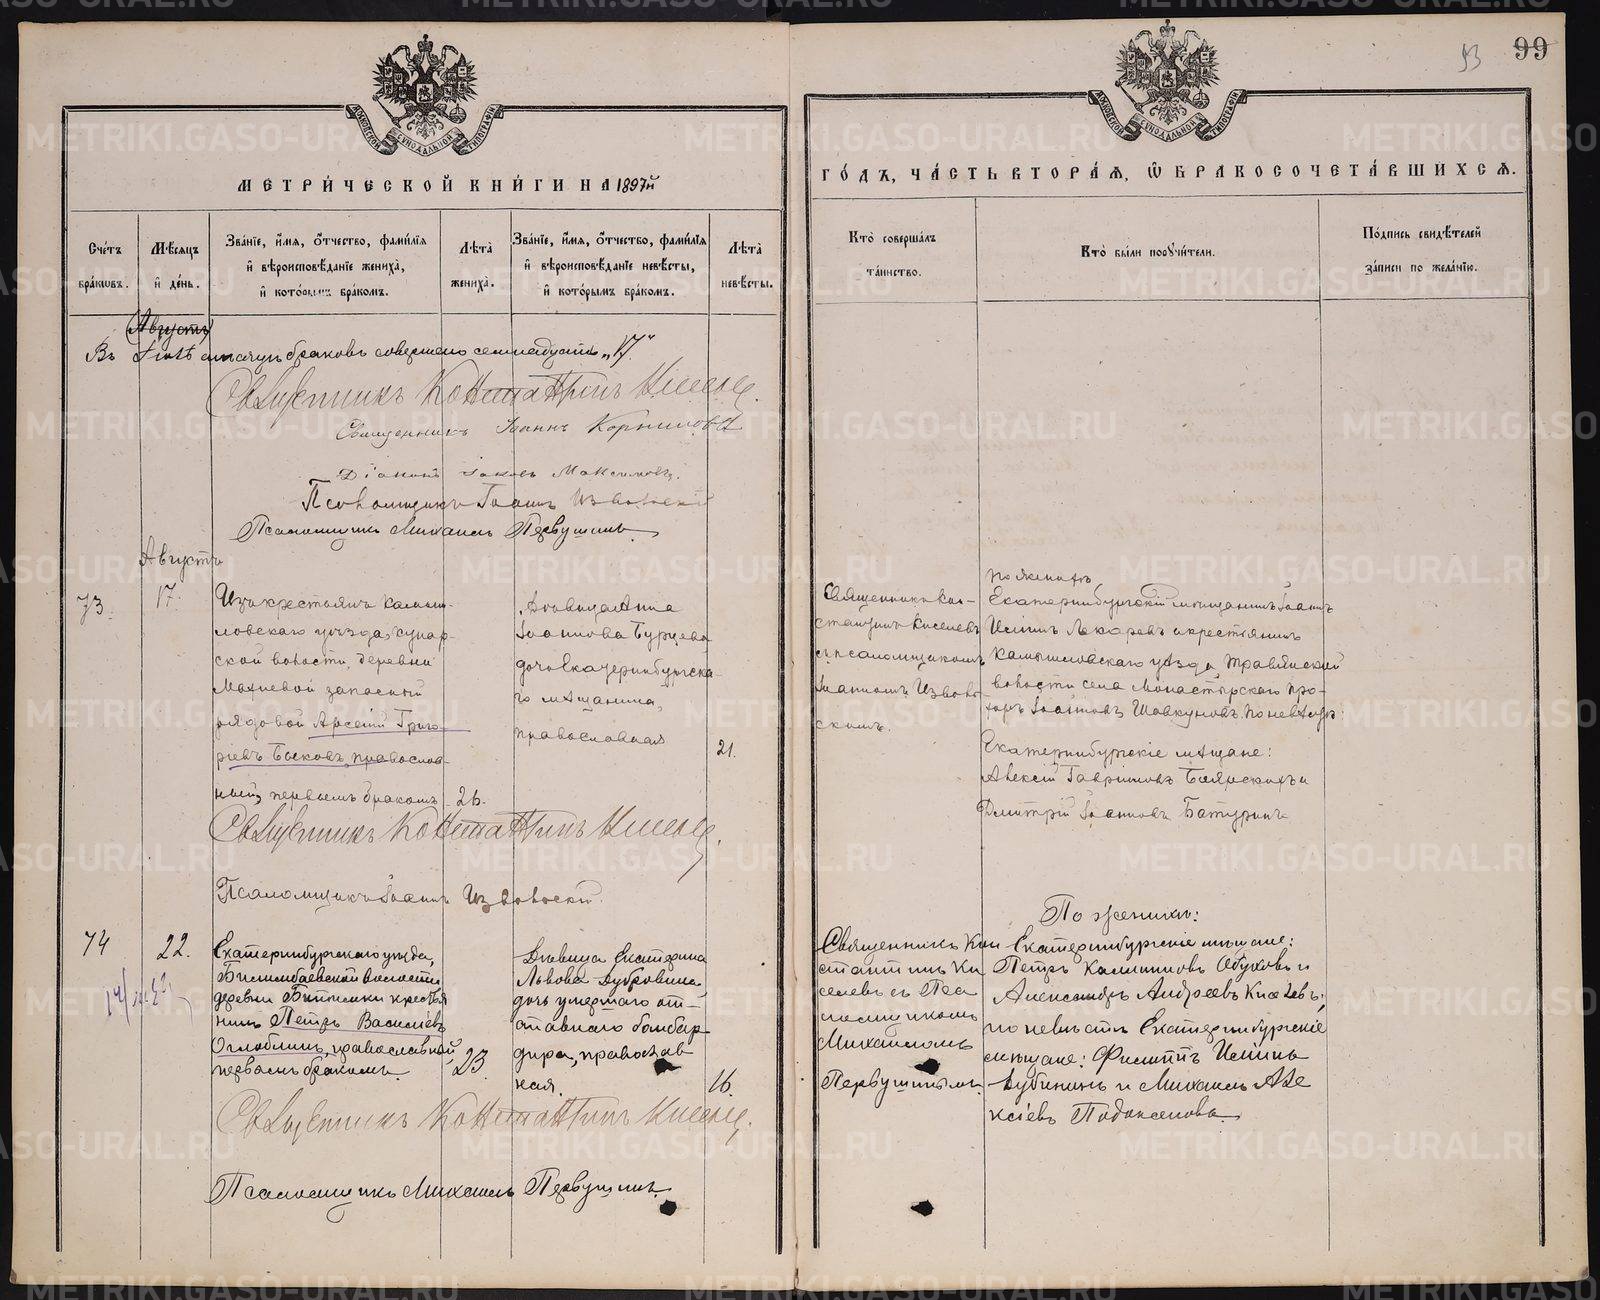 93 99
МЕТРИ́ЧЕСКОЙ КНИ́ГИ НА 1897й
ГО́ДЪ, ЧА́СТЬ ВТОРА́Я, Ѿ БРАКОСОЧЕТА́ВШИХСЯ.
Сче́тъ бра́кωвъ.
Мѣ́сяцъ и҆ де́нь.
Зва́нїе, и҆́мя, ѻ҆́тчество, фами́лїя
и҆ вѣроисповѣ́данїе жениха̀,
и҆ кото́рымъ бра́комъ.
Лѣ́та̀ жениха̀.
Зва́нїе, и҆́мя, ѻ҆́тчество, фами́лїя
и҆ вѣроисповѣ́данїе невѣ́сты,
и҆ кото́рымъ бра́комъ.
Лѣ́та̀ невѣ́сты.
Кто̀ соверша́лъ
та́инство.
Кто̀ бы́ли порꙋчи́тели.
По́дпись свидѣ́телей
за́писи по жела́нїю.
(Августъ)
Въ Іюлѣ мѣсяцѣ браковъ совершено семнадцать „17“
Священникъ Константинъ Киселевъ.
Священникъ Іоаннъ Корниловъ
Діаконъ Іаковъ Максимовъ.
Псаломщикъ Іоаннъ Извольскій
Псаломщикъ Михаилъ Первушинъ
Августъ
73.
17.
Изъ крестьянъ Камыш-
ловскаго уѣзда, Кунар-
ской волости, деревни
Махневой запасный
рядовой Арсеній Григо-
ріевъ Быковъ, православ-
ный, первымъ бракомъ
26.
Дѣвица Анна
Іоаннова Бурцева
дочь Екатеринбургска-
го мѣщанина,
православная
21.
Священникъ Кон-
стантинъ Киселевъ
съ псаломщикомъ
Іоанномъ Изволь-
скимъ.
По женихѣ
Екатеринбургскій мѣщанинъ Іоаннъ
Ильинъ Лекаревъ и крестьянинъ
Камышловскаго уѣзда Травянской
волости села Монастырскаго Про-
хоръ Іоанновъ Шавкуновъ. По невѣстѣ
Екатеринбургскіе мѣщане:
Алексій Гавріиловъ Боярскихъ и
Дмитрій Іоанновъ Батуринъ
Священникъ Константинъ Киселевъ.
Псаломщикъ Іоаннъ Извольскій.
74
22.
Екатеринбургскаго уѣзда,
Билимбаевской волости
деревни Битимки кресть
нинъ Петръ Василіевъ
Оглоблинъ, православный,
первымъ бракомъ.
23
Дѣвица Екатерина
Львова Дубровина,
дочь умершаго от-
ставного бомбар-
дира, православ
ная.
16.
Священникъ Кон
стантинъ Ки
селевъ съ Пса
ломщикомъ
Михаиломъ
Первушинымъ
По женихѣ:
Екатеринбургскіе мѣщане:
Петръ Калинниковъ Обуховъ и
Александръ Андреевъ Киселевъ;
по невѣстѣ Екатеринбургскіе
мѣщане: Филиппъ Ильинъ
Дубининъ и Михаилъ Але
ксіевъ Подоксеновъ
Священникъ Константинъ Киселевъ.
Псаломщикъ Михаилъ Первушинъ
METRIKI.GASO-URAL.RU